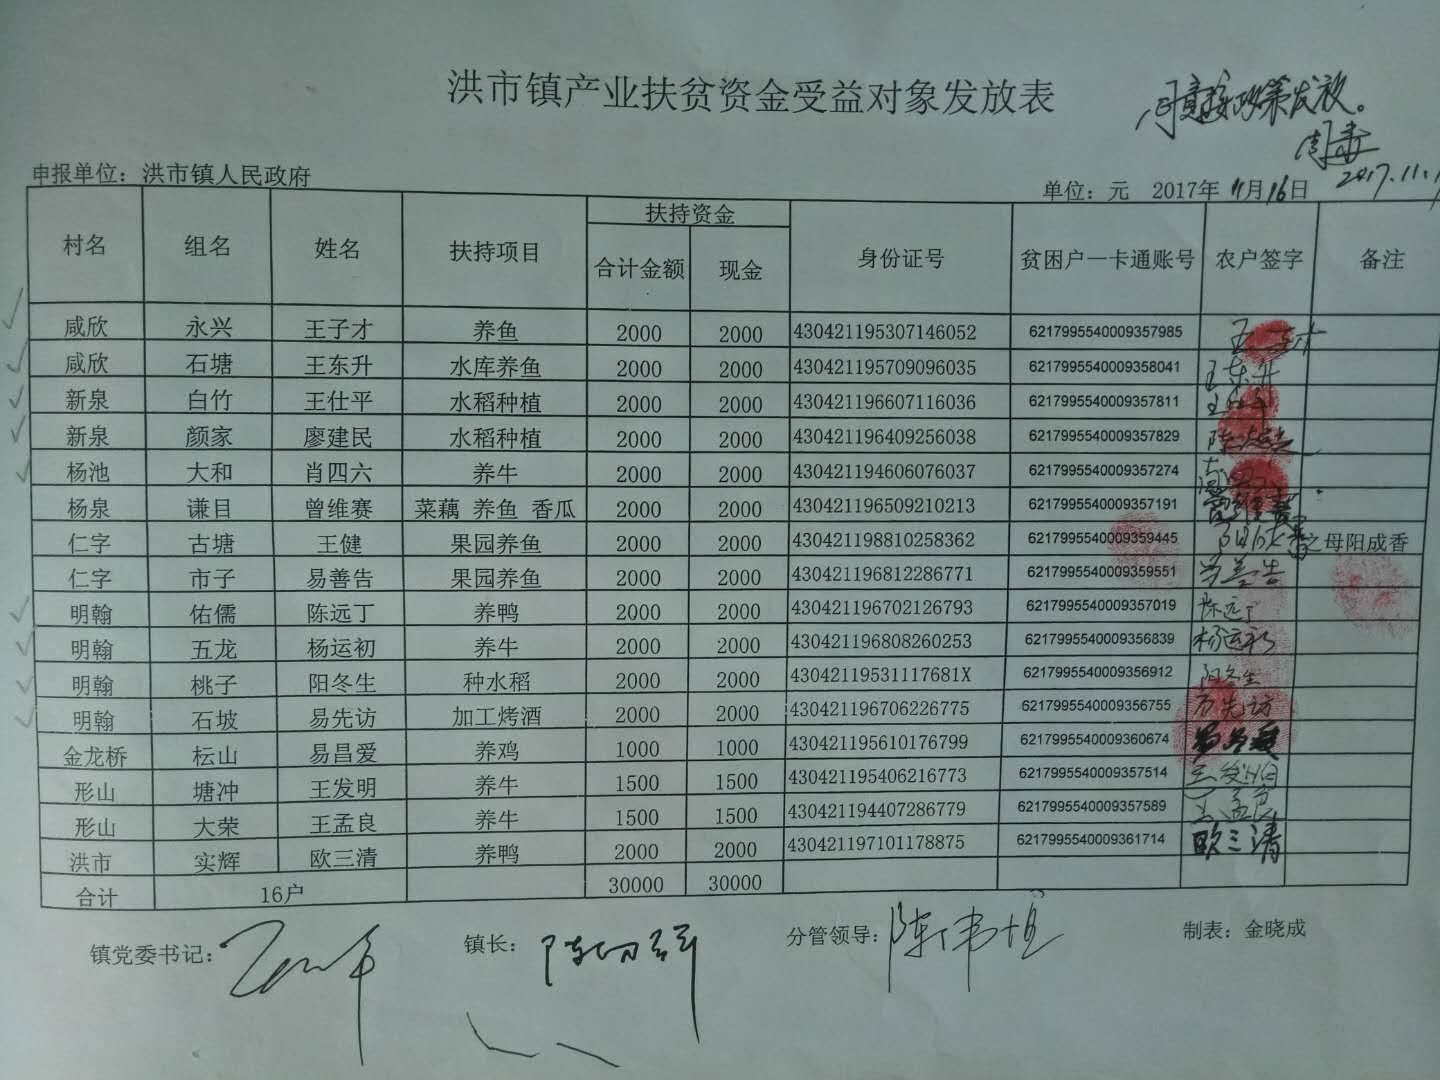 洪市镇产业扶贫资金受益对象发放表
同意按政策发放。
2017.11.1
申报单位：洪市镇人民政府 单位：元 2017年 11月16日
村名 组名 姓名 扶持项目 扶持资金 身份证号 贫困户一卡通账号 农户签字 备注
合计金额 现金
咸欣 永兴 王子才 养鱼 2000 2000 430421195307146052 6217995540009357985 王子才
咸欣 石塘 王东升 水库养鱼 2000 2000 430421195709096035 6217995540009358041 王东升
新泉 白竹 王仕平 水稻种植 2000 2000 430421196607116036 6217995540009357811 王仕平
新泉 颜家 廖建民 水稻种植 2000 2000 430421196409256038 6217995540009357829
杨池 大和 肖四六 养牛 2000 2000 430421194606076037 6217995540009357274
杨泉 谦目 曾维赛 菜藕 养鱼 香瓜 2000 2000 430421196509210213 6217995540009357191 曾维赛
仁字 古塘 王健 果园养鱼 2000 2000 430421198810258362 6217995540009359445 阳成香 之母阳成香
仁字 市子 易善告 果园养鱼 2000 2000 430421196812286771 6217995540009359551 易善告
明翰 佑儒 陈远丁 养鸭 2000 2000 430421196702126793 6217995540009357019 陈远丁
明翰 五龙 杨运初 养牛 2000 2000 430421196808260253 6217995540009356839 杨运初
明翰 桃子 阳冬生 种水稻 2000 2000 43042119531117681X 6217995540009356912 阳冬生
明翰 石坡 易先访 加工烤酒 2000 2000 430421196706226775 6217995540009356755 易先访
金龙桥 枟山 易昌爱 养鸡 1000 1000 430421195610176799 6217995540009360674 易昌爱
形山 塘冲 王发明 养牛 1500 1500 430421195406216773 6217995540009357514 王发明
形山 大荣 王孟良 养牛 1500 1500 430421194407286779 6217995540009357589 王孟良
洪市 实辉 欧三清 养鸭 2000 2000 430421197101178875 6217995540009361714 欧三清
合计 16户 30000 30000
镇党委书记： 镇长： 分管领导： 制表：金晓成